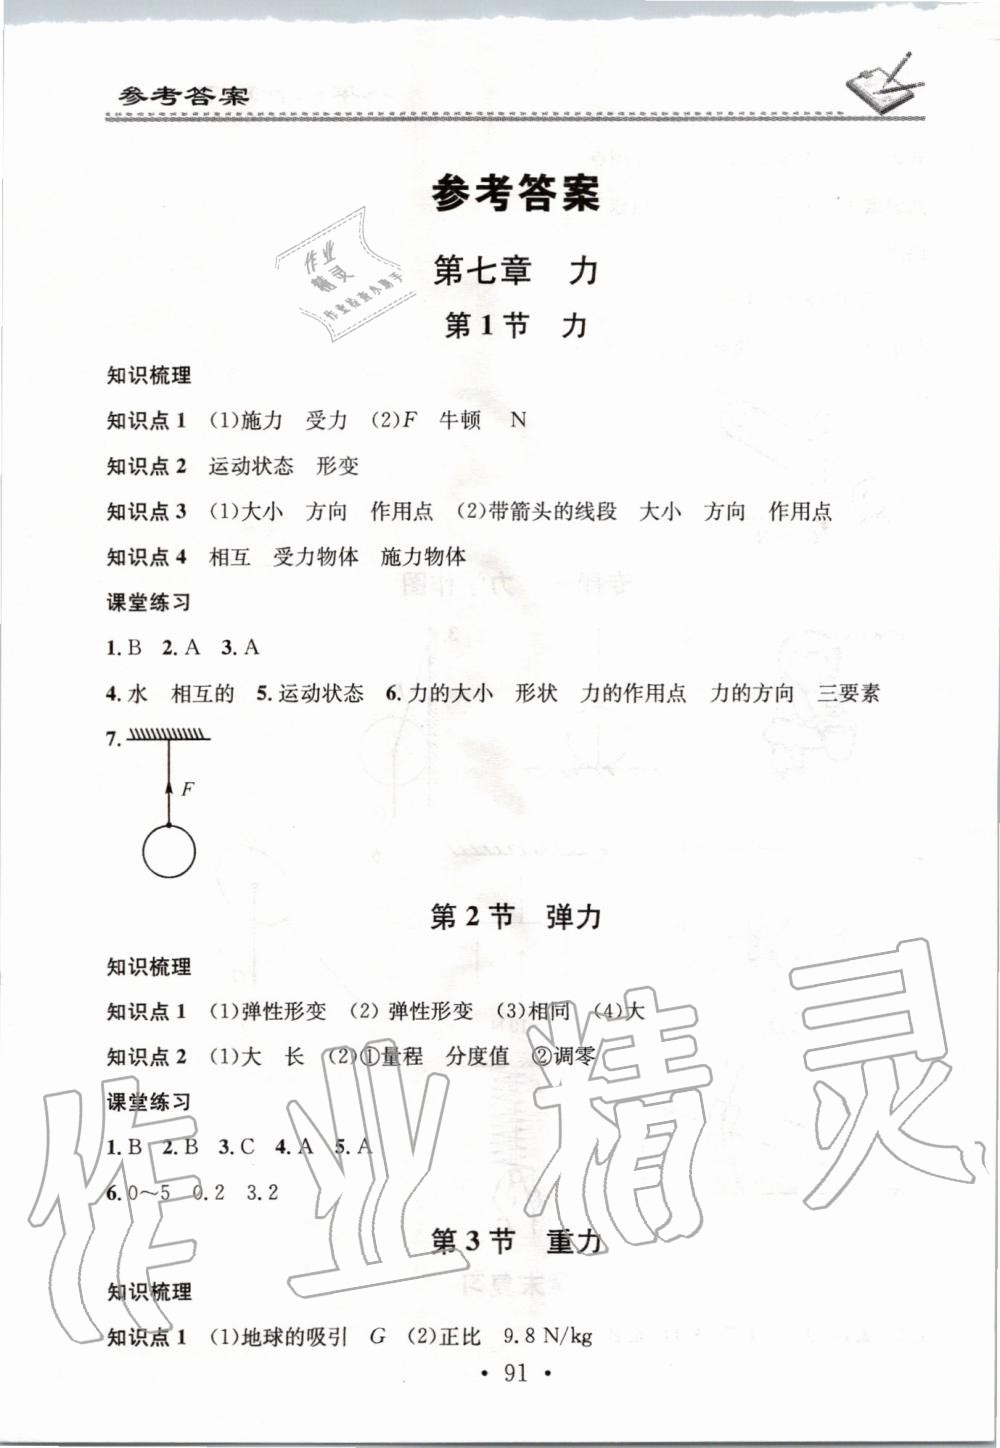 参考答案
参考答案
作业
精灵
作业检查小助手
第七章 力
第1节 力
知识梳理
知识点1 (1)施力 受力 (2)F 牛顿 N
知识点2 运动状态 形变
知识点3 (1)大小 方向 作用点 (2)带箭头的线段 大小 方向 作用点
知识点4 相互 受力物体 施力物体
课堂练习
1.B 2.A 3.A
4.水 相互的 5.运动状态 6.力的大小 形状 力的作用点 力的方向 三要素
7.
F
第2节 弹力
知识梳理
知识点1 (1)弹性形变 (2)弹性形变 (3)相同 (4)大
知识点2 (1)大 长 (2)①量程 分度值 ②调零
课堂练习
1.B 2.B 3.C 4.A 5.A
6.0~5 0.2 3.2
第3节 重力
知识梳理
知识点1 (1)地球的吸引 G (2)正比 9.8 N/kg
· 91 ·
作业精灵